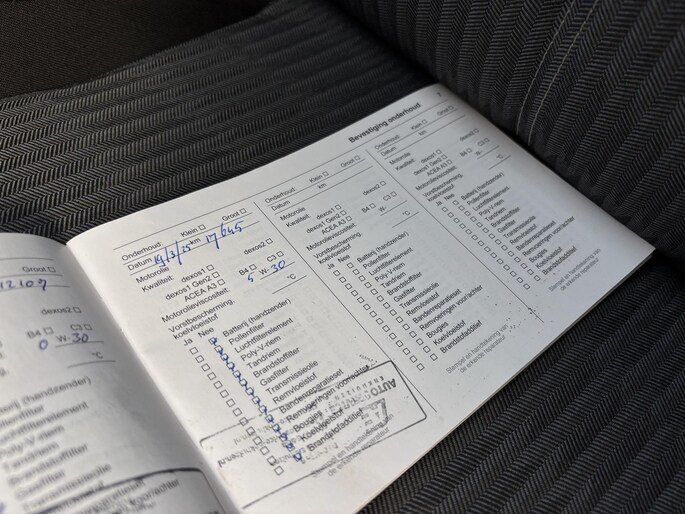 Bevestiging onderhoud
7
Groot
12107
dexos2
B4 C3
0 W-30
°C
Batterij (handzender)
Pollenfilter
Luchtfilterelement
Poly-V-riem
Tandriem
Brandstoffilter
Gasfilter
Transmissieolie
Onderhoud: Klein Groot
Datum 19/3/25 km 17645
Motorolie
Kwaliteit: dexos1 dexos2
dexos1 Gen2
ACEA A3 B4 C3
Motorolieviscositeit: 5 W- 30
Vorstbescherming, °C
koelvloeistof
Ja Nee
Batterij (handzender)
Pollenfilter
Luchtfilterelement
Poly-V-riem
Tandriem
Brandstoffilter
Gasfilter
Transmissieolie
Remvloeistof
Bandenreparatieset
Remvoeringen voor/achter
Bougies
Koelvloeistof
Brandstofadditief
Stempel en handtekening van
de erkende reparateur
Onderhoud: Klein Groot
Datum km
Motorolie
Kwaliteit: dexos1 dexos2
dexos1 Gen2
ACEA A3 B4 C3
Motorolieviscositeit: W-
Vorstbescherming, °C
koelvloeistof
Ja Nee
Batterij (handzender)
Pollenfilter
Luchtfilterelement
Poly-V-riem
Tandriem
Brandstoffilter
Gasfilter
Transmissieolie
Remvloeistof
Bandenreparatieset
Remvoeringen voor/achter
Bougies
Koelvloeistof
Brandstofadditief
Stempel en handtekening van
de erkende reparateur
Onderhoud: Klein Groot
Datum km
Motorolie
Kwaliteit: dexos1 dexos2
dexos1 Gen2
ACEA A3 B4 C3
Motorolieviscositeit: W-
Vorstbescherming, °C
koelvloeistof
Ja Nee
Batterij (handzender)
Pollenfilter
Luchtfilterelement
Poly-V-riem
Tandriem
Brandstoffilter
Gasfilter
Transmissieolie
Remvloeistof
Bandenreparatieset
Remvoeringen voor/achter
Bougies
Koelvloeistof
Brandstofadditief
Stempel en handtekening van
de erkende reparateur